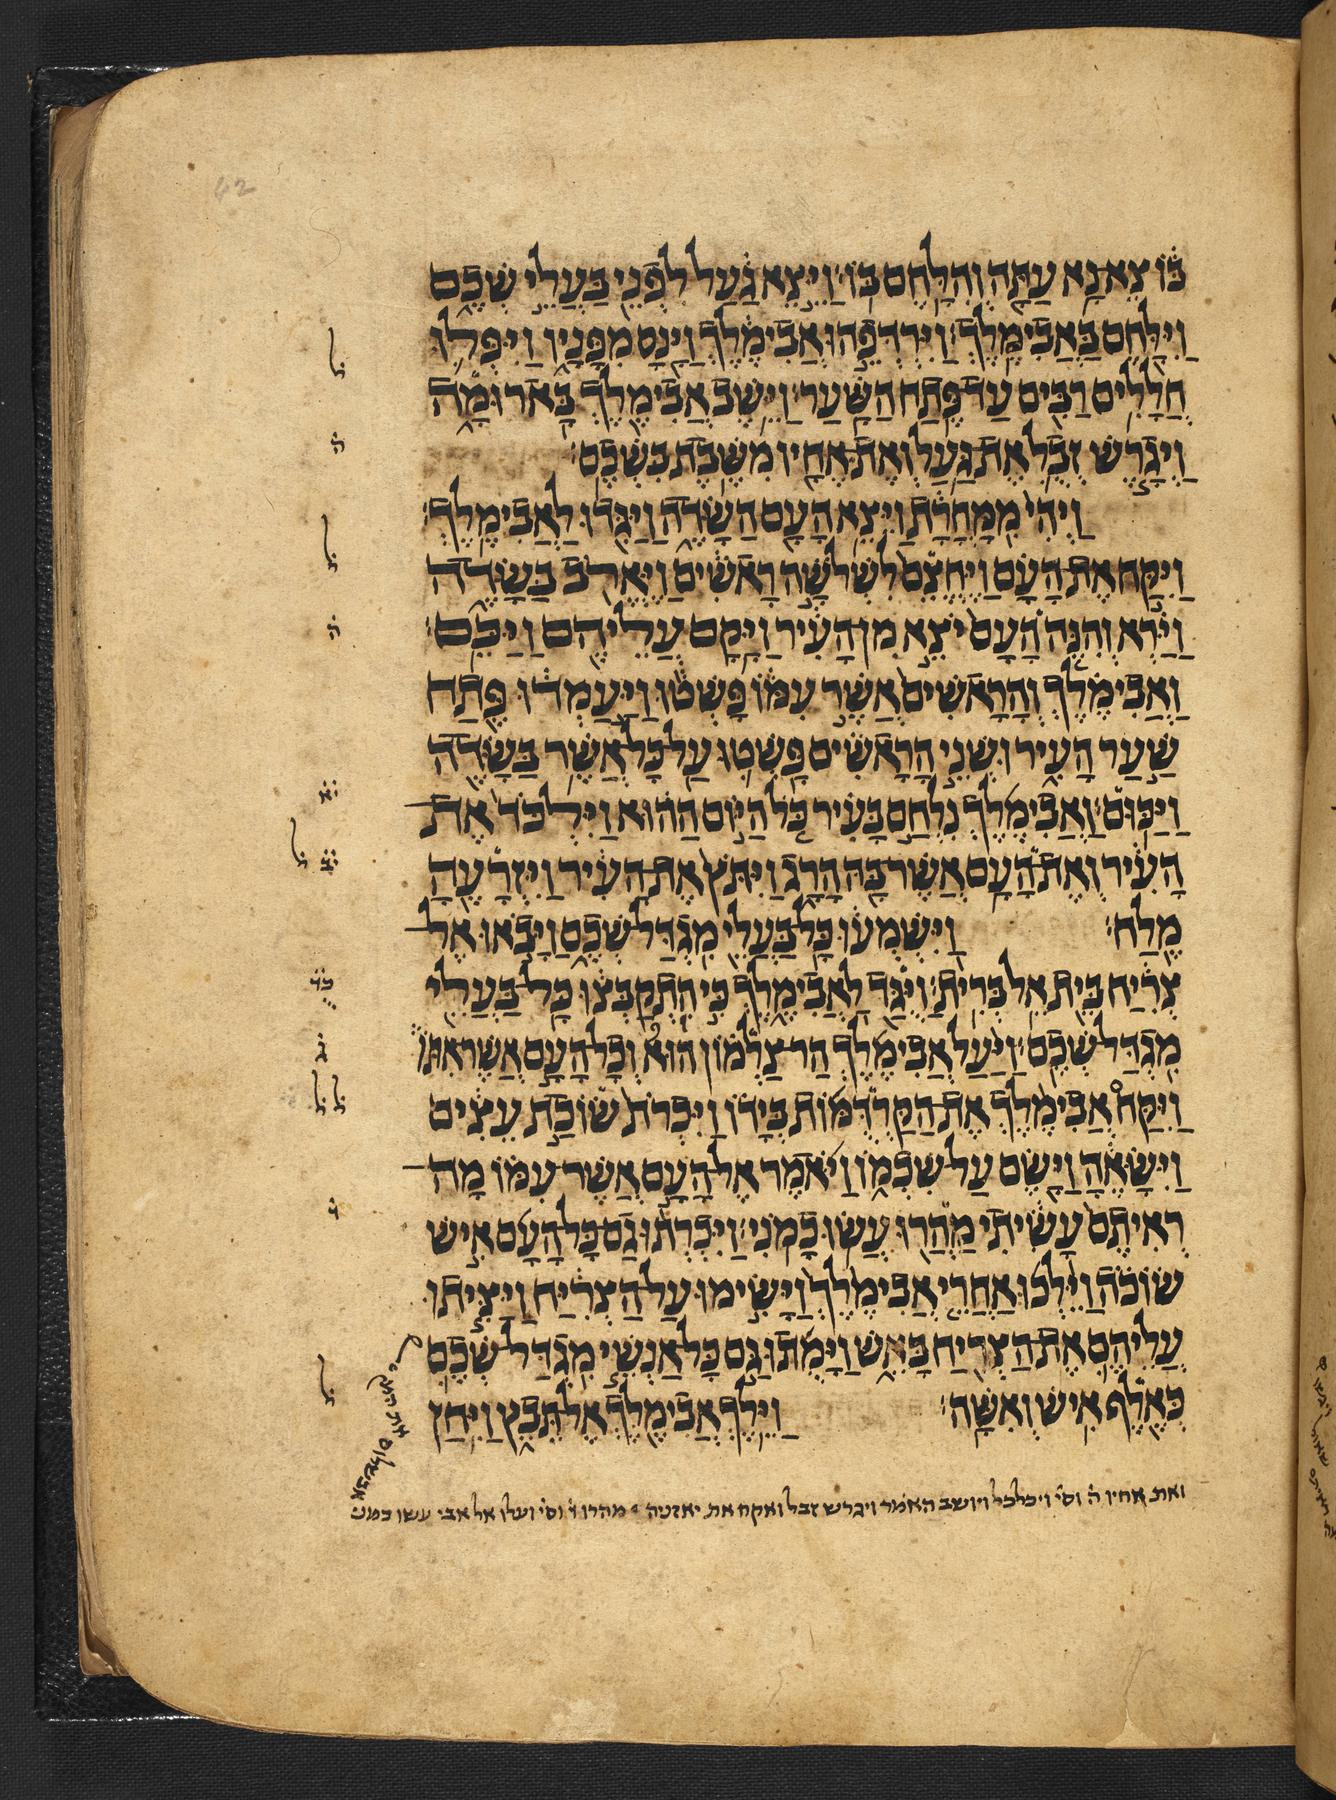 בּ֔וֹ צֵא־נָ֥א עַתָּ֖ה וְהִלָּ֥חֶם בּֽוֹ׃ וַיֵּ֣צֵא גַ֔עַל לִפְנֵ֖י בַּעֲלֵ֣י שְׁכֶ֑ם
וַיִּלָּ֖חֶם בַּאֲבִימֶֽלֶךְ׃ וַיִּרְדְּפֵ֣הוּ אֲבִימֶ֔לֶךְ וַיָּ֖נָס מִפָּנָ֑יו וַֽיִּפְּל֛וּ
חֲלָלִ֥ים רַבִּ֖ים עַד־פֶּ֥תַח הַשָּֽׁעַר׃ וַיֵּ֥שֶׁב אֲבִימֶ֖לֶךְ בָּארוּמָ֑ה
וַיְגָ֧רֶשׁ זְבֻ֛ל אֶת־גַּ֥עַל וְאֶת־אֶחָ֖יו מִשֶּׁ֥בֶת בִּשְׁכֶֽם׃
וַֽיְהִי֙ מִֽמָּחֳרָ֔ת וַיֵּצֵ֥א הָעָ֖ם הַשָּׂדֶ֑ה וַיַּגִּ֖דוּ לַאֲבִימֶֽלֶךְ׃
וַיִּקַּ֣ח אֶת־הָעָ֗ם וַֽיֶּחֱצֵם֙ לִשְׁלֹשָׁ֣ה רָאשִׁ֔ים וַיֶּאֱרֹ֖ב בַּשָּׂדֶ֑ה
וַיַּ֗רְא וְהִנֵּ֤ה הָעָם֙ יֹצֵ֣א מִן־הָעִ֔יר וַיָּ֥קָם עֲלֵיהֶ֖ם וַיַּכֵּֽם׃
וַאֲבִימֶ֗לֶךְ וְהָרָאשִׁים֙ אֲשֶׁ֣ר עִמּ֔וֹ פָּשְׁט֕וּ וַיַּ֣עַמְד֔וּ פֶּ֖תַח
שַׁ֣עַר הָעִ֑יר וּשְׁנֵ֣י הָֽרָאשִׁ֗ים פָּֽשְׁט֛וּ עַֽל־כָּל־אֲשֶׁ֥ר בַּשָּׂדֶ֖ה
וַיַּכּֽוּם׃ וַאֲבִימֶ֜לֶךְ נִלְחָ֣ם בָּעִ֗יר כֹּ֚ל הַיּ֣וֹם הַה֔וּא וַיִּלְכֹּד֙ אֶת
הָעִ֔יר וְאֶת־הָעָ֥ם אֲשֶׁר־בָּ֖הּ הָרָ֑ג וַיִּתֹּץ֙ אֶת־הָעִ֔יר וַיִּזְרָעֶ֖הָ
מֶֽלַח׃ וַֽיִּשְׁמְע֔וּ כָּֽל־בַּעֲלֵ֖י מִֽגְדַּל־שְׁכֶ֑ם וַיָּבֹ֥אוּ אֶל
צְרִ֖יחַ בֵּ֥ית אֵ֥ל בְּרִֽית׃ וַיֻּגַּ֖ד לַאֲבִימֶ֑לֶךְ כִּ֣י הִֽתְקַבְּצ֔וּ כָּֽל־בַּעֲלֵ֖י
מִֽגְדַּל־שְׁכֶֽם׃ וַיַּ֨עַל אֲבִימֶ֜לֶךְ הַר־צַלְמ֗וֹן הוּא֮ וְכָל־הָעָ֣ם אֲשֶׁר־אִתּוֹ֒
וַיִּקַּח֩ אֲבִימֶ֨לֶךְ אֶת־הַקַּרְדֻּמּ֜וֹת בְּיָד֗וֹ וַיִּכְרֹת֙ שׂוֹכַ֣ת עֵצִ֔ים
וַיִּ֨שָּׂאֶ֔הָ וַיָּ֖שֶׂם עַל־שִׁכְמ֑וֹ וַיֹּ֜אמֶר אֶל־הָעָ֣ם אֲשֶׁר־עִמּ֗וֹ מָ֤ה
רְאִיתֶם֙ עָשִׂ֔יתִי מַהֲר֖וּ עֲשׂ֥וּ כָמֽוֹנִי׃ וַיִּכְרְת֨וּ גַם־כָּל־הָעָ֜ם אִ֣ישׁ
שׂוֹכֹ֗ה וַיֵּ֨לְכ֜וּ אַחֲרֵ֤י אֲבִימֶ֙לֶךְ֙ וַיָּשִׂ֣ימוּ עַֽל־הַצְּרִ֔יחַ וַיַּצִּ֧יתוּ
עֲלֵיהֶ֛ם אֶֽת־הַצְּרִ֖יחַ בָּאֵ֑שׁ וַיָּמֻ֜תוּ גַּ֣ם כָּל־אַנְשֵׁ֧י מִֽגְדַּל־שְׁכֶ֛ם
כְּאֶ֖לֶף אִ֥ישׁ וְאִשָּֽׁה׃ וַיֵּ֥לֶךְ אֲבִימֶ֖לֶךְ אֶל־תֵּבֵ֑ץ וַיִּ֥חַן
ואת אחיו ה֗ וסי֗ ויכלכל ויושב האמר ויגרש זבל ואקח את יאזניה מהרו ו֗ וסי֗ ועלו אל אבי עשו כמוני